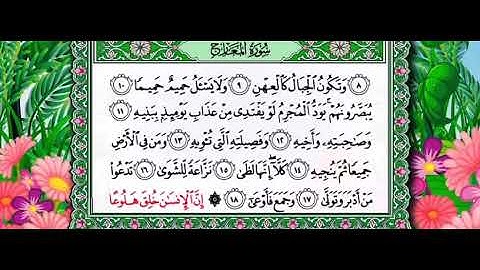 سورة المعارج
٨ وَتَكُونُ الْجِبَالُ كَالْعِهْنِ ٩ وَلَا يَسْـَٔلُ حَمِيمٌ حَمِيمًا ١٠
يُبَصَّرُونَهُمْ ۚ يَوَدُّ الْمُجْرِمُ لَوْ يَفْتَدِى مِنْ عَذَابِ يَوْمِئِذٍ بِبَنِيهِ ١١
وَصَاحِبَتِهِ وَأَخِيهِ ١٢ وَفَصِيلَتِهِ الَّتِى تُـْٔوِيهِ ١٣ وَمَن فِى الْأَرْضِ
جَمِيعًا ثُمَّ يُنجِيهِ ١٤ كَلَّا ۖ إِنَّهَا لَظَىٰ ١٥ نَزَّاعَةً لِّلشَّوَىٰ ١٦ تَدْعُوا
مَنْ أَدْبَرَ وَتَوَلَّىٰ ١٧ وَجَمَعَ فَأَوْعَىٰ ١٨ إِنَّ الْإِنسَـٰنَ خُلِقَ هَلُوعًا